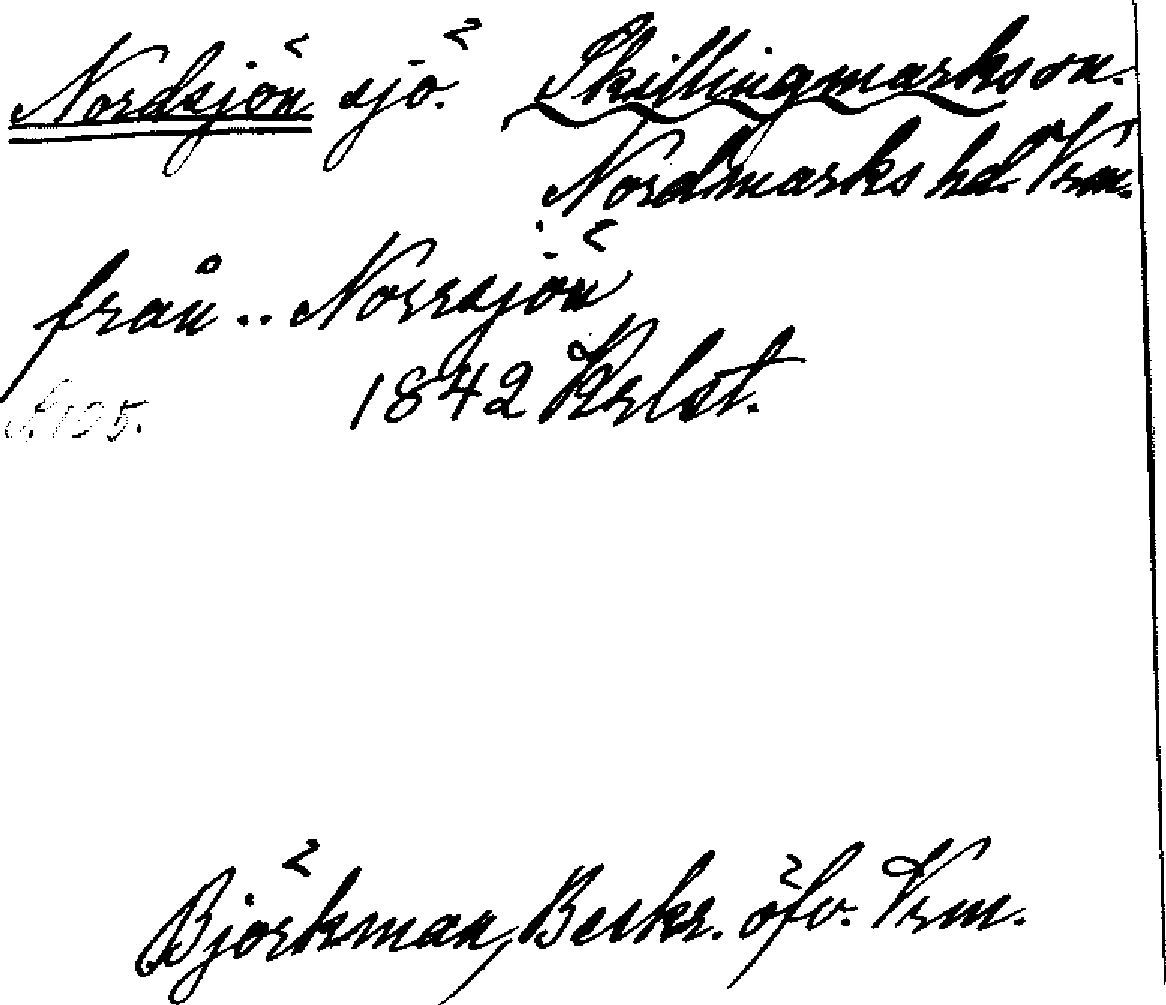 Nordsjön sjö. Skillingmarks sn.
Nordmarks hd. Vrm.
från .. Norrsjön
1842 Krlst.
S. 195.
Björkman, Beskr. öfv. Vrm.